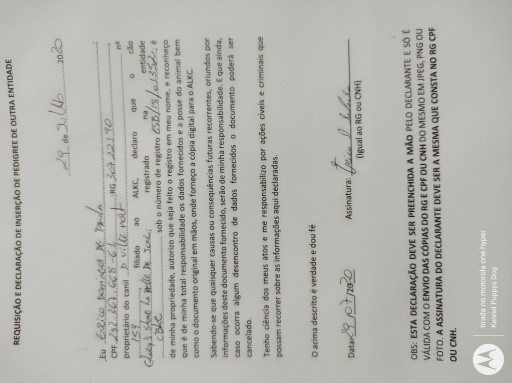 REQUISIÇÃO E DECLARAÇÃO DE INSERÇÃO DE PEDIGREE DE OUTRA ENTIDADE
29 de Julho 2020
Eu
CPF RG
proprietário do canil D. Ville nº
filiado ao ALKC, declaro que o cão
registrado na entidade
sob o número de registro é
de minha propriedade, autorizo que seja feito o registro em meu nome, e reconheço
que é de minha total responsabilidade os dados fornecidos e a posse do animal bem
como o documento original em mãos, onde forneço a cópia digital para o ALKC.
Sabendo-se que quaisquer causas ou consequências futuras recorrentes, oriundos por
informações deste documento fornecido, serão de minha responsabilidade. E que ainda,
caso ocorra algum desencontro de dados fornecidos o documento poderá ser
cancelado.
Tenho ciência dos meus atos e me responsabilizo por ações cíveis e criminais que
possam recorrer sobre as informações aqui declaradas.
O acima descrito é verdade e dou fé
Data: 29/07/2020 Assinatura:
(Igual ao RG ou CNH)
OBS: ESTA DECLARAÇÃO DEVE SER PREENCHIDA A MÃO PELO DECLARANTE E SÓ É
VÁLIDA COM O ENVIO DAS CÓPIAS DO RG E CPF OU CNH DO MESMO EM JPEG, PNG OU
FOTO. A ASSINATURA DO DECLARANTE DEVE SER A MESMA QUE CONSTA NO RG CPF
OU CNH.
tirada no motorola one hyper
Kennel Puppys Dog